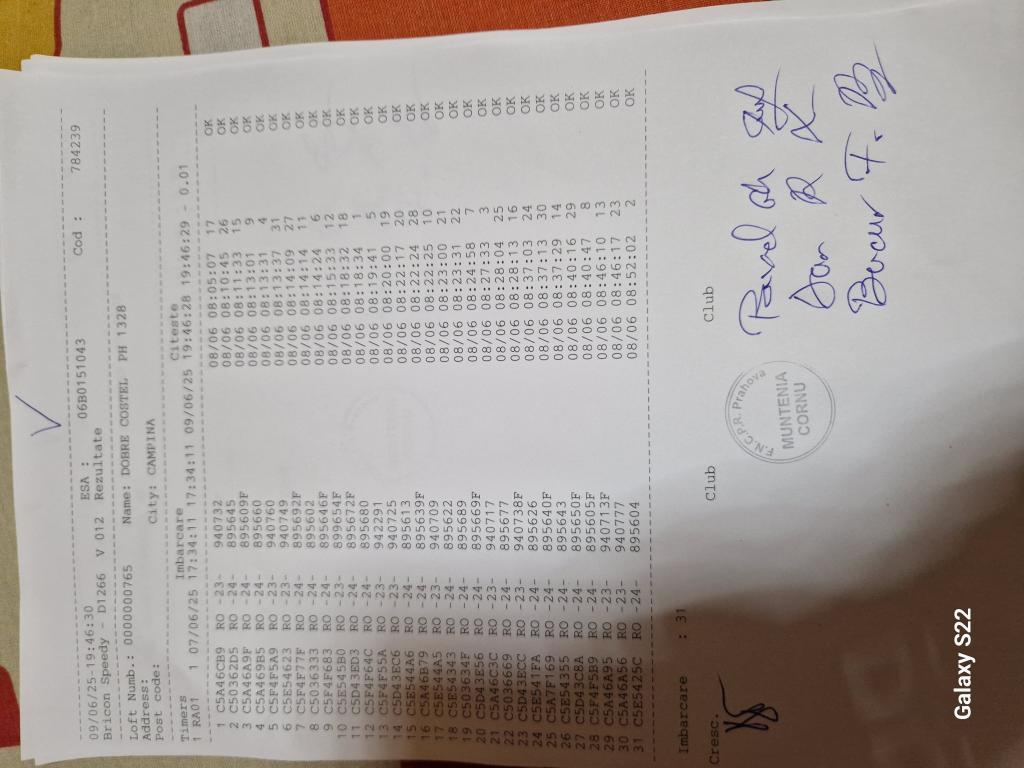 09/06/25-19:46:30 ESA : 06B0151043 Cod : 784239
Bricon Speedy - D1266 V 012 Rezultate
Loft Numb.: 0000000765 Name: DOBRE COSTEL PH 1328
Address:
Post code: City: CAMPINA
Timers Imbarcare Citeste
1 RA01 1 07/06/25 17:34:11 17:34:11 09/06/25 19:46:28 19:46:29 - 0.01
1 C5A46CB9 RO -23- 940732 08/06 08:05:07 17 OK
2 C50362D5 RO -24- 895645 08/06 08:10:45 26 OK
3 C5A46A9F RO -24- 895609F 08/06 08:11:33 15 OK
4 C5A469B5 RO -24- 895660 08/06 08:13:01 9 OK
5 C5F4F5A9 RO -23- 940760 08/06 08:13:31 4 OK
6 C5E54623 RO -23- 940749 08/06 08:13:37 31 OK
7 C5F4F77F RO -24- 895692F 08/06 08:14:09 27 OK
8 C5036333 RO -24- 895602 08/06 08:14:14 11 OK
9 C5F4F683 RO -24- 895646F 08/06 08:14:24 6 OK
10 C5E545B0 RO -23- 899654F 08/06 08:15:33 12 OK
11 C5D43ED3 RO -24- 895672F 08/06 08:18:32 18 OK
12 C5F4F64C RO -24- 895680 08/06 08:18:34 1 OK
13 C5F4F55A RO -23- 942291 08/06 08:19:41 5 OK
14 C5D43EC6 RO -23- 940725 08/06 08:20:00 19 OK
15 C5E544A6 RO -24- 895613 08/06 08:22:17 20 OK
16 C5A46B79 RO -24- 895639F 08/06 08:22:24 28 OK
17 C5E544A5 RO -23- 940709 08/06 08:22:25 10 OK
18 C5E54343 RO -24- 895622 08/06 08:23:00 21 OK
19 C503634F RO -24- 895689 08/06 08:23:31 22 OK
20 C5D43E56 RO -24- 895669F 08/06 08:24:58 7 OK
21 C5A46C3C RO -23- 940717 08/06 08:27:33 3 OK
22 C5036669 RO -24- 895677 08/06 08:28:04 25 OK
23 C5D43ECC RO -23- 940738F 08/06 08:28:13 16 OK
24 C5E541FA RO -24- 895626 08/06 08:37:03 24 OK
25 C5A7F169 RO -24- 895640F 08/06 08:37:13 30 OK
26 C5E54355 RO -24- 895643 08/06 08:37:29 14 OK
27 C5D43C8A RO -24- 895650F 08/06 08:40:16 29 OK
28 C5F4F5B9 RO -24- 895605F 08/06 08:40:47 8 OK
29 C5A46A95 RO -23- 940713F 08/06 08:46:10 13 OK
30 C5A46A56 RO -23- 940777 08/06 08:46:17 23 OK
31 C5E5425C RO -24- 895604 08/06 08:52:02 2 OK
Imbarcare : 31
Cresc. Club Club
F.N.C.P.R. Prahova
MUNTENIA
CORNU
Galaxy S22